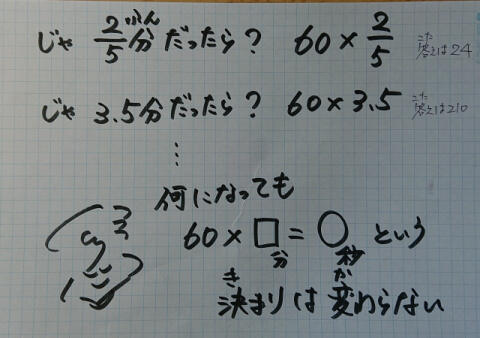 じゃ 2/5分だったら? 60×2/5 答えは24
ふん こた
じゃ 3.5分だったら? 60×3.5 答えは210
こた
⋮
何になっても
60×□=○ という
分 秒
決まりは変わらない
き か